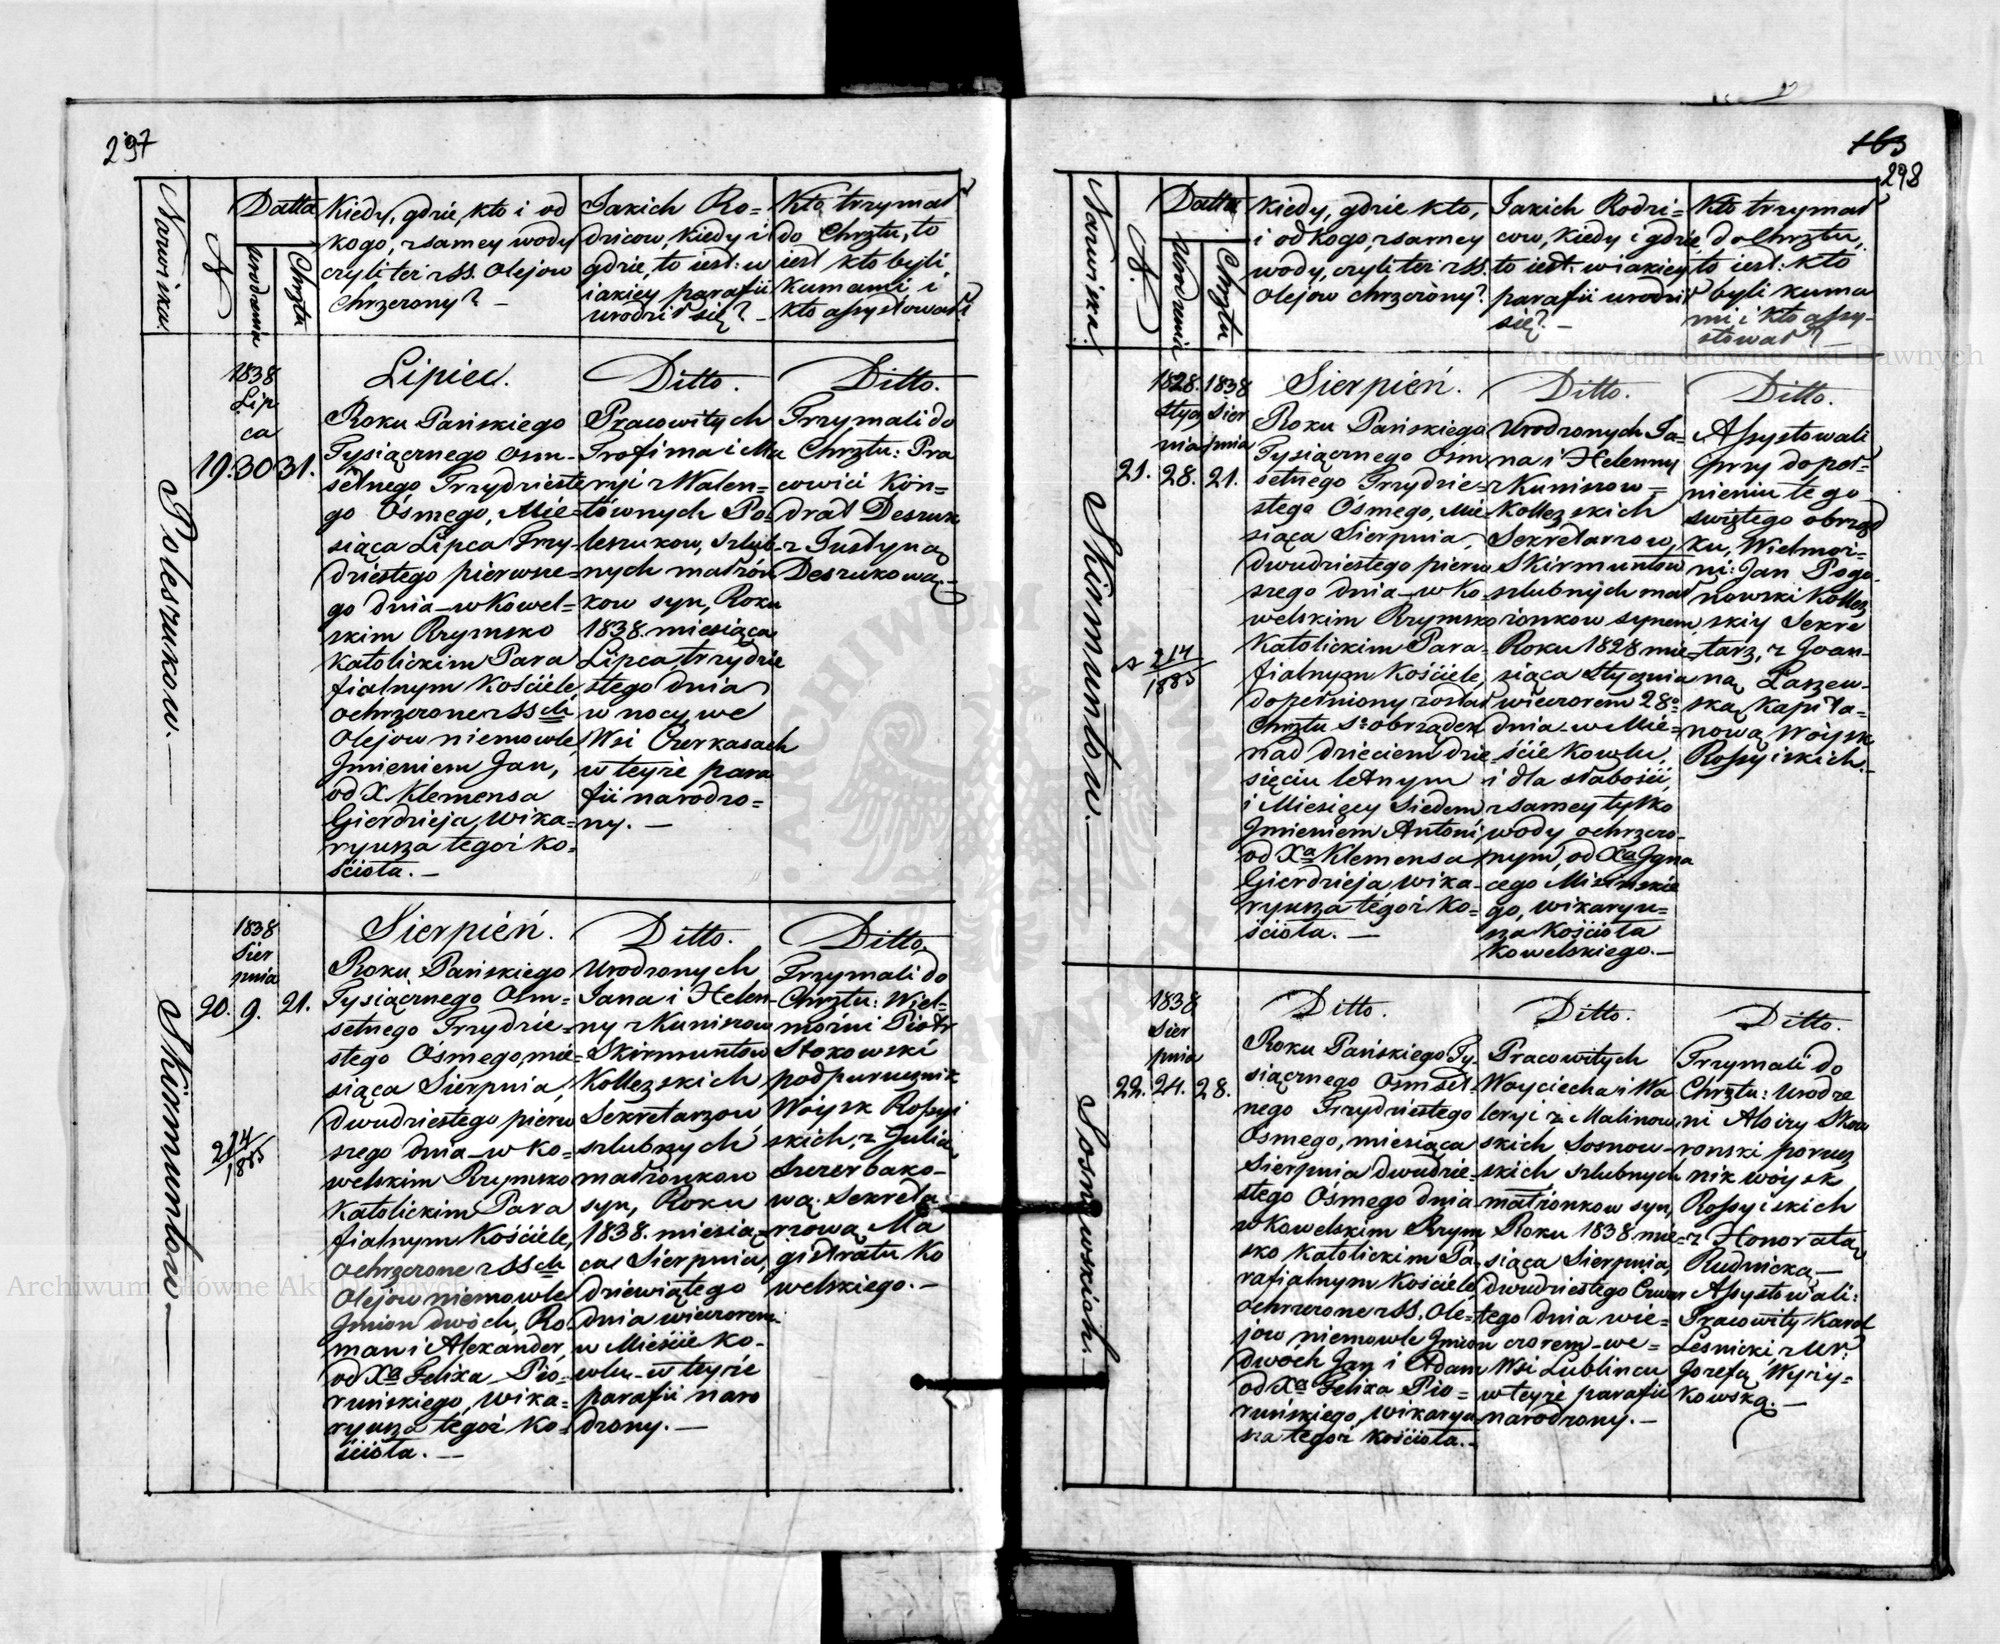 297
Nazwiska
N
Datta
urodzenia
Chrztu
Kiedy, gdzie, kto i od
kogo, z samey wody
czyli też z SS. Olejow
Chrzczony? –
Jakich Ro=
dzicow, kiedy i
gdzie, to iest: w
iakiey parafii
urodził się? –
Kto trzymał
do Chrztu, to
iest kto byli
kumami i
kto assystował?
Poleszukow. —
1838
Lip
ca
19. 30 31.
Lipiec.
Roku Pańskiego
Tysiącznego Osm-
setnego Trzydzieste
go Ósmego, Mie=
siąca Lipca Trzy-
dziestego pierwsze=
go dnia – w Kowel=
skim Rzymsko
Katolickim Para
fialnym Kościele,
ochrzczone z SS ch
Olejow niemowle
Jmieniem Jan,
od X. Klemensa
Gierdzieja, wika=
ryusza tegoż Ko-
ścioła. –
Ditto.
Pracowitych
Trofima i Ma
ryi z Walen=
tównych Po=
leszukow, szlub-
nych małżon
kow syn, Roku
1838. miesiąca
Lipca, trzydzie
stego dnia
w nocy we
Wsi Czerkasach
w teyże para
fii narodzo=
ny. —
Ditto.
Trzymali do
Chrztu: Pra
cowici Kon=
drat Deszuk
z Justyną
Deszukową. –
Skirmuntow —
1838
Sier
pnia
20. 9. 21.
214
1885
Sierpień.
Roku Pańskiego
Tysiącznego Osm=
setnego Trzydzie=
stego Ósmego, mie=
siąca Sierpnia,
dwudziestego pierw
szego dnia – w Ko=
welskim Rzymsko
Katolickim Para
fialnym Kościele,
ochrzczone z SS ch
Olejow niemowle
Jmion dwóch, Ro
man i Alexander,
od Xa Felixa Pio=
ruńskiego, wika=
ryusza tegoż Ko=
ścioła. —
Ditto.
Urodzonych
Jana i Helen-
ny z Kuniszow
Skirmuntow
Kolleżskich
Sekretarzow
szlubnych
małżonkow
syn, Roku
1838. miesią=
ca Sierpnia,
dziewiątego
dnia wieczorem
w Mieście Ko-
wlu – w teyże
parafii naro
dzony. —
Ditto.
Trzymali do
Chrztu: Wiel=
możni Piotr
Stokowski
podporucznik
Woysk Rossyi
skich, z Julią
Szczerbako-
wą Sekreta
rzową Ma
gistratu Ko
welskiego. –
163
298
Nazwiska.
N.
Datta
Urodzenia
Chrztu
Kiedy, gdzie kto,
i od kogo, z samey
wody, czyli też z SS.
Olejow chrzczony?
Jakich Rodzi=
cow, kiedy i gdzie,
to iest: w iakiey
parafii urodził
się? –
Kto trzymał
do Chrztu,
to iest: kto
byli kuma
mi i kto assy-
stował? –
Skirmuntow. —
1828. 1838
Stycz Sier
nia pnia
21. 28. 21.
214
1885
Sierpień.
Roku Pańskiego
Tysiącznego Osm
setnego Trzydzie=
stego Ósmego, Mie=
siąca Sierpnia,
dwudziestego pierw
szego dnia – w Ko-
welskim Rzymsko
Katolickim Para=
fialnym Kościele,
dopełniony został
Chrztu So obrządek
nad dziecięciem dzie
sięciu letnym
i Miesięcy Siedem
Jmieniem Antoni,
od Xa Klemensa
Gierdzieja, wika-
ryusza tegoż Ko=
ścioła. —
Ditto.
Urodzonych Ja=
na i Helenny
z Kuniszow=
Kolleżskich
Sekretarzow,
Skirmuntow
szlubnych mał
żonkow synem,
Roku 1828 mie=
siąca Stycznia
wieczorem 28o
dnia – w Mie=
ście Kowlu,
i dla słabości,
z samey tylko
wody ochrzczo-
nym, od Xa Igna
cego Misińskie
go, wikaryu=
sza Kościoła
Kowelskiego. –
Ditto.
Assystowali
przy dopeł=
nieniu tego
świętego obrząd
ku, Wielmoż=
ni: Jan Pogo=
nowski Kolleż
skiy Sekre
tarz, z Joan-
ną Laszew-
ską Kapita=
nową Woysk
Rossyiskich. –
Sosnowskich. –
1838
Sier
pnia
22. 24. 28.
Ditto.
Roku Pańskiego Ty-
siącznego Osmset-
nego Trzydziestego
Ósmego, miesiąca
Sierpnia dwudzie=
stego Ósmego dnia
w Kowelskim Rzym
sko Katolickim Pa-
rafialnym Kościele,
ochrzczone z SS. Ole=
jow niemowle Jmion
dwóch Jan i Adam
od Xa Felixa Pio=
ruńskiego, wikaryu
sza tegoż Kościoła. –
Ditto.
Pracowitych
Woyciecha i Wa
leryi z Malinow
skich Sosnow=
skich szlubnych
małżonkow syn,
Roku 1838 mie=
siąca Sierpnia,
dwudziestego Czwar
tego dnia wie=
czorem – we=
Wsi Lublincu
w teyże parafii
narodzony. –
Ditto.
Trzymali do
Chrztu: Urodze
ni Aloizy Skow
ronski porucz
nik woysk
Rossyiskich
z Honoratą
Rudnicką –
Assystowali:
Pracowity Karol
Lesnicki z Ur:
Jozefą Wyrzy-
kowską. –
Archiwum Główne Akt Dawnych
Archiwum Główne Akt Dawnych